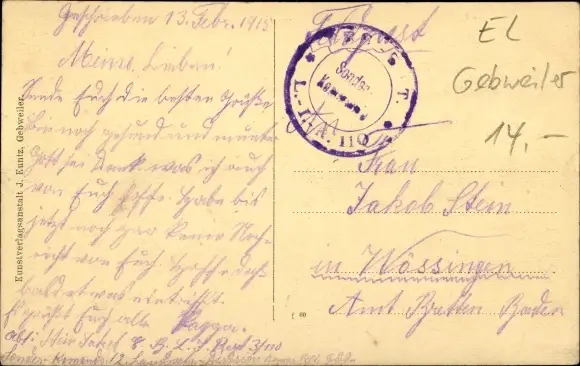 Geschrieben 13. Febr. 1915
Meine Lieben!
Sende Euch die besten Grüße
Bin noch gesund und munter
Gott sei Dank was ich auch
von Euch hoffe. Habe bis
jetzt noch gar keine Nach-
richt von Euch. Hoffe doch
bald etwas
Es grüßt Euch alle
Abs: Stein Jakob
Kunstverlagsanstalt J. Kuntz, Gebweiler
Feldpost
Sonder
L.-I. 110
EL
Gebweiler
14.-
Frau
Jakob Stein
in Wössingen
Amt Bretten Baden